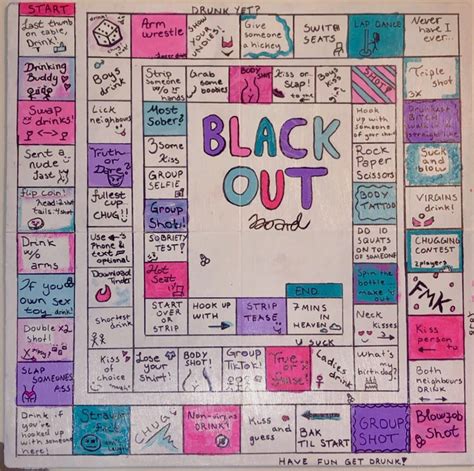 DRUNK YET?
START
Last thumb
on table,
Drink!
Arm
wrestle
SHOW
YOUR
Give
someone
a hickey
SWITCH
SEATS
LAP DANCE
Never
have I
ever...
Triple
shot
3x
Suck
and
blow
VIRGINS
drink!
CHUGGING
CONTEST
players
FMK
Kiss
person
to
Both
neighbours
DRINK
Blowjob
Shot
GROUP
SHOT
BAK
TIL START
Kiss
and
guess
Non-virgins
DRINK!
CHUG
Straight
face
Drink if
you've
hooked up
with someone
here!
SLAP
SOMEONES
ASS!
Double x2
shot!
If you
own sex
toy
drink!
Drink
w/
arms
flip coin!
Sent a
nude
last
Swap
drinks!
Drinking
Buddy
Boys
drink
Strip
someone
w/o
hands
Grab
some
boobies
BODY
SHOT
Kiss or
Slap
to the
BIKINI
SHOT!
Hook up
with
someone
of your
Rock
Paper
Scissors
BODY
TATTOO
DO 10
SQUATS
on top
of someone
Spin the
bottle
make
out
Neck
kisses
What's
my
birthday?
Ladies
drink
True or
False!
Group
TikTok!
BODY
SHOT!
Lose
your
Shirt!
Kiss
of
choice
shortest
drink
Download
Tinder
use
Phone &
text
optional
fullest
cup
CHUG!!
Truth
or
Dare?
Lick
neighbours
Most
Sober?
3some
Kiss
GROUP
SELFIE
Group
Shot!
SOBRIETY
TEST!
Hot
Seat
START
OVER
OR
STRIP
HOOK UP
with
STRIP
TEASE
7 MINS
IN
HEAVEN
END
U SUCK
BLACK
OUT
board
HAVE FUN GET DRUNK!